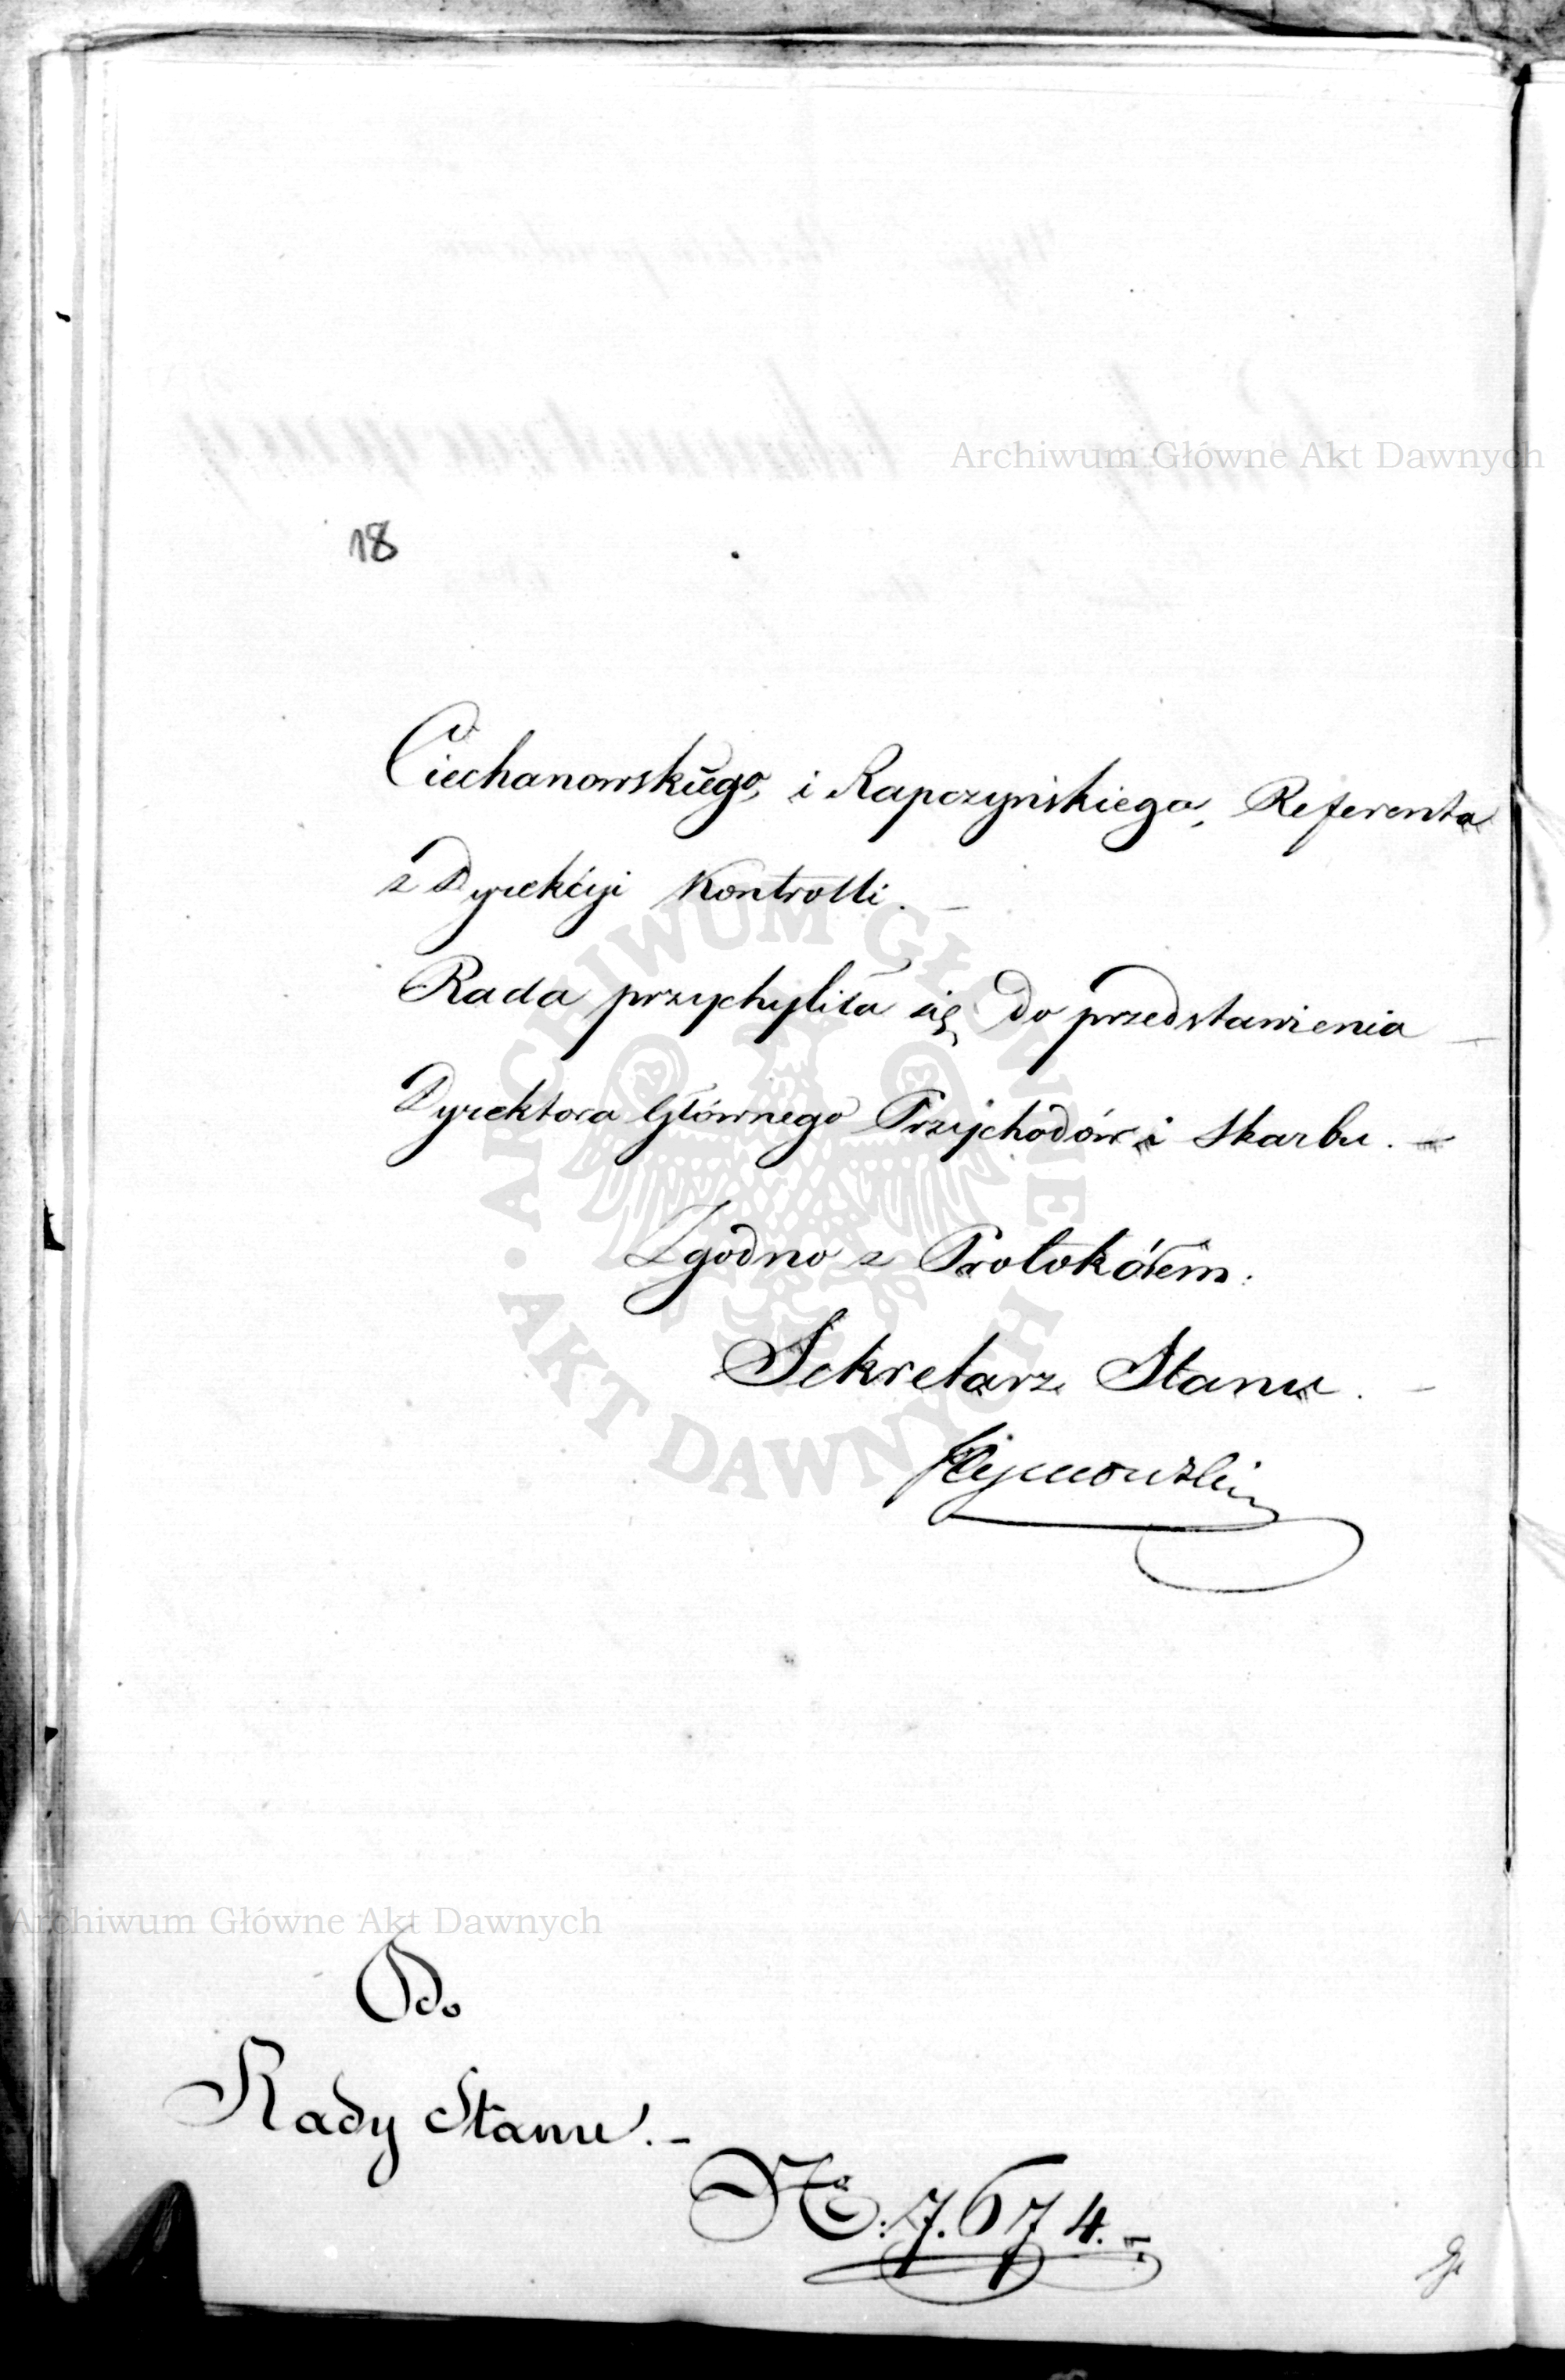 Archiwum Główne Akt Dawnych
18
Ciechanowskiego, i Rapczyńskiego, Referenta
z Dyrekcyi Kontrolli. –
Rada przychyliła się do przedstawienia –
Dyrektora Głównego Przychodów i Skarbu. –
Zgodno z Protokółem:
Sekretarz Stanu. –
ARCHIWUM GŁÓWNE • AKT DAWNYCH
Archiwum Główne Akt Dawnych
Do
Rady Stanu. –
No: 7.674. –